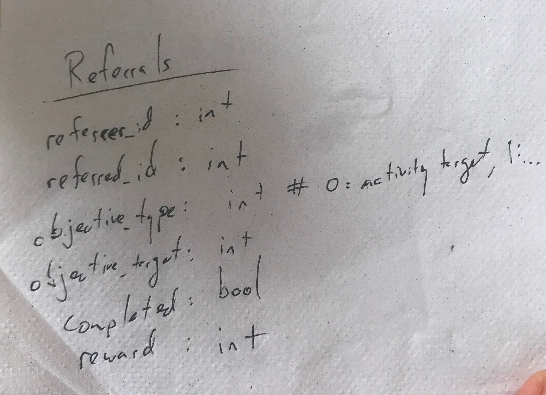 Referrals
refereer_id : int
referred_id : int
objective_type : int # 0: activity target, 1:...
objective_target : int
completed : bool
reward : int